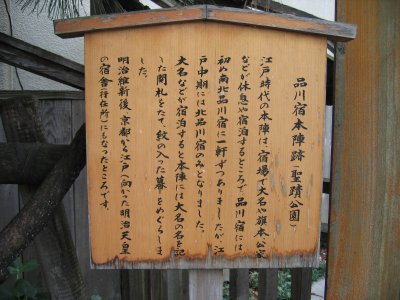 品川宿本陣跡（聖蹟公園）
江戸時代の本陣は、宿場で大名や旗本、公家
などが休息や宿泊するところで、品川宿には
初め南北品川宿に一軒ずつありましたが、江
戸中期には北品川宿のみとなりました。
大名などが宿泊すると本陣には大名の名を記
した関札をたて、紋の入った幕をめぐらしま
した。
明治維新後、京都から江戸へ向かった明治天皇
の宿舎（行在所）にもなったところです。